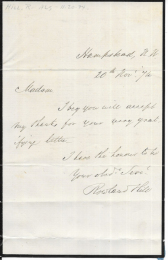 Hampstead, N.W.
20th Novr /74
Madam
I beg you will accept
my thanks for your very grat-
ifying letter.
I have the honour to be
Your obdt Servt
Rowland Hill